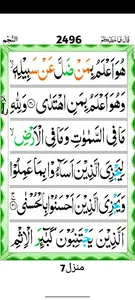 النَّجْم 2496 قَالَ فَمَا خَطْبُكُمْ
هُوَ اَعْلَمُ بِمَنْ ضَلَّ عَنْ سَبِيْلِهٖ
وَهُوَ اَعْلَمُ بِمَنِ اهْتَدٰى ۝ وَلِلّٰهِ
مَا فِى السَّمٰوٰتِ وَمَا فِى الْاَرْضِ ۙ
لِيَجْزِىَ الَّذِيْنَ اَسَآءُوْا بِمَا عَمِلُوْا
وَيَجْزِىَ الَّذِيْنَ اَحْسَنُوْا بِالْحُسْنٰى ۝
اَلَّذِيْنَ يَجْتَنِبُوْنَ كَبٰٓئِرَ الْاِثْمِ
منزل 7